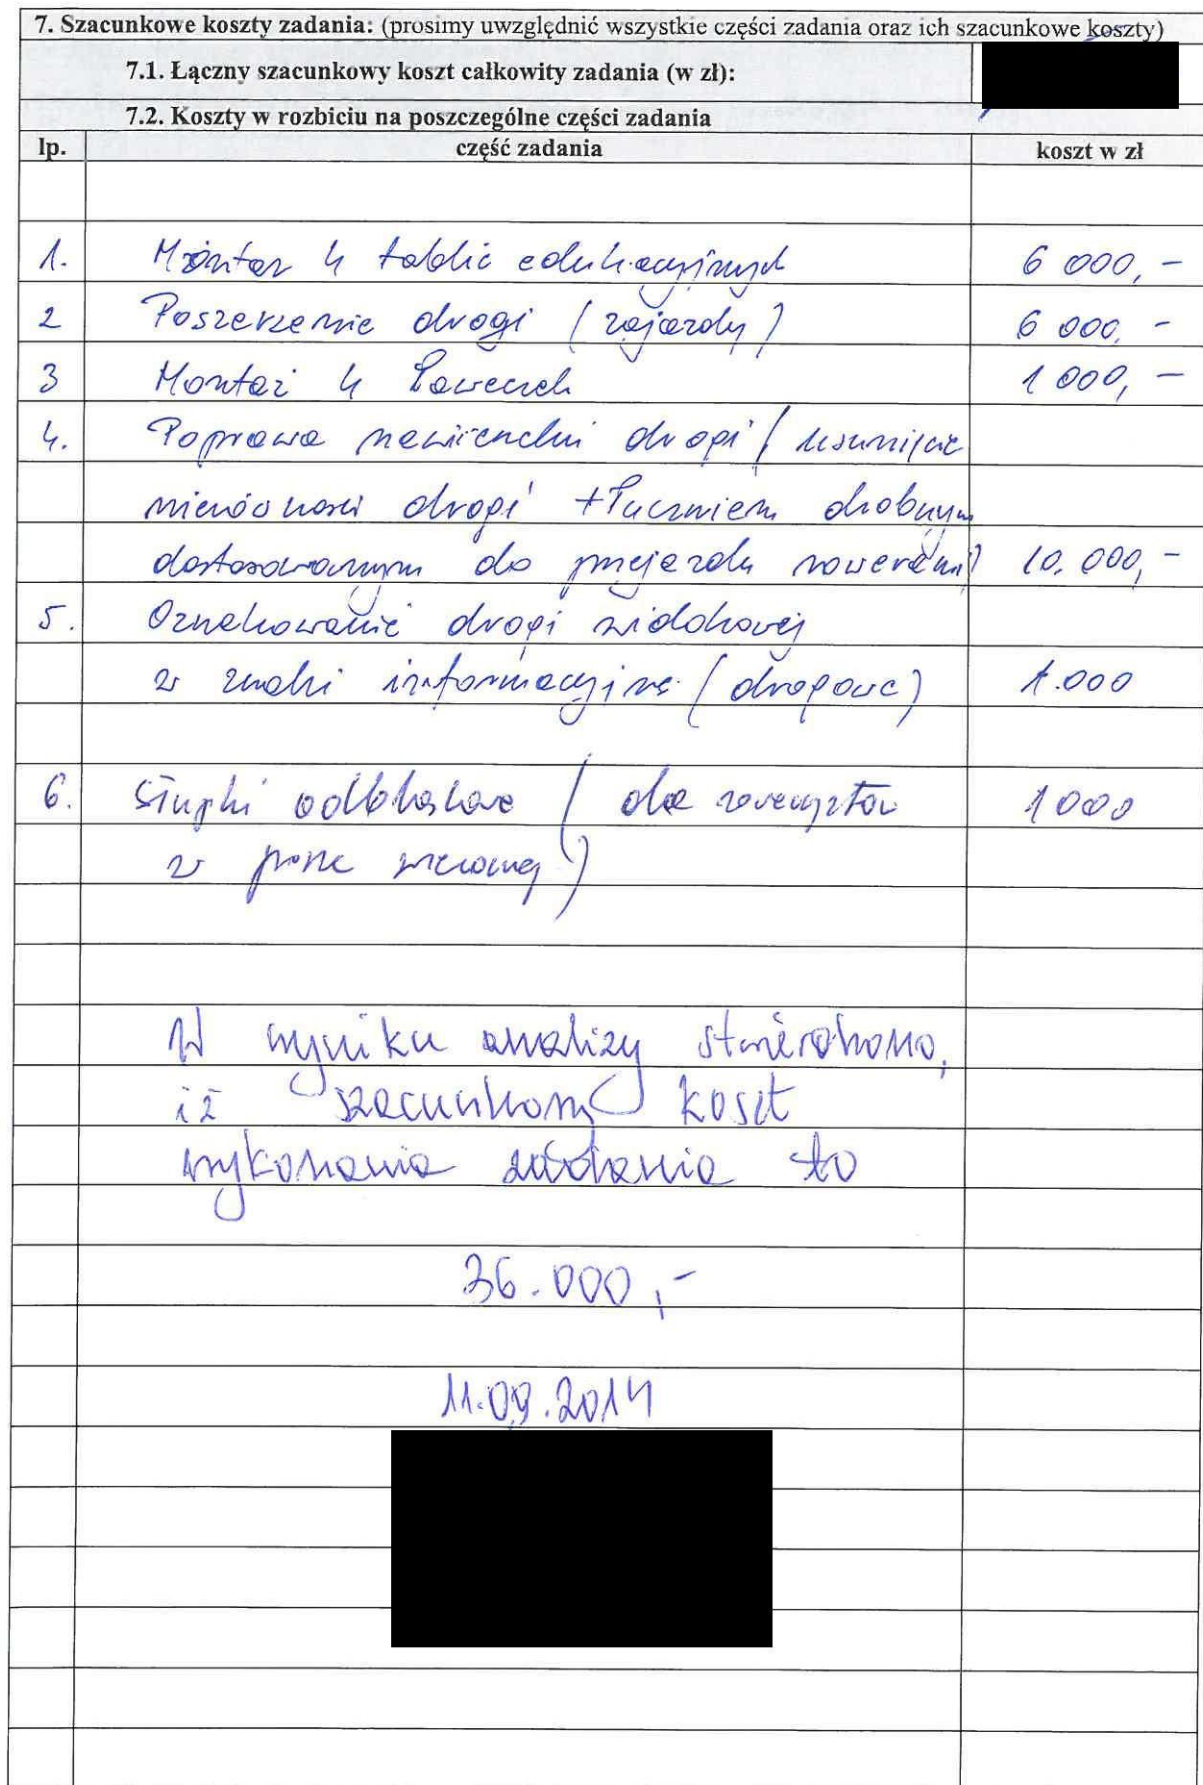 7. Szacunkowe koszty zadania: (prosimy uwzględnić wszystkie części zadania oraz ich szacunkowe koszty)
7.1. Łączny szacunkowy koszt całkowity zadania (w zł):
7.2. Koszty w rozbiciu na poszczególne części zadania
lp. część zadania koszt w zł
1. Montaż 4 tablic edukacyjnych 6 000,-
2 Poszerzenie drogi (zajazdy) 6 000,-
3 Montaż 4 ławeczek 1 000,-
4. Poprawa nawierzchni drogi (usunięcie
nierówności drogi +tłuczniem drobnym
dostosowanym do przejazdu rowerami) 10.000,-
5. Oznakowanie drogi widokowej
w znaki informacyjne (drogowe) 1.000
6. Słupki odblaskowe (dla rowerzystów 1000
w porze wieczornej)
W wyniku analizy stwierdzono,
iż szacunkowy koszt
wykonania zadania to
36.000,-
11.09.2014